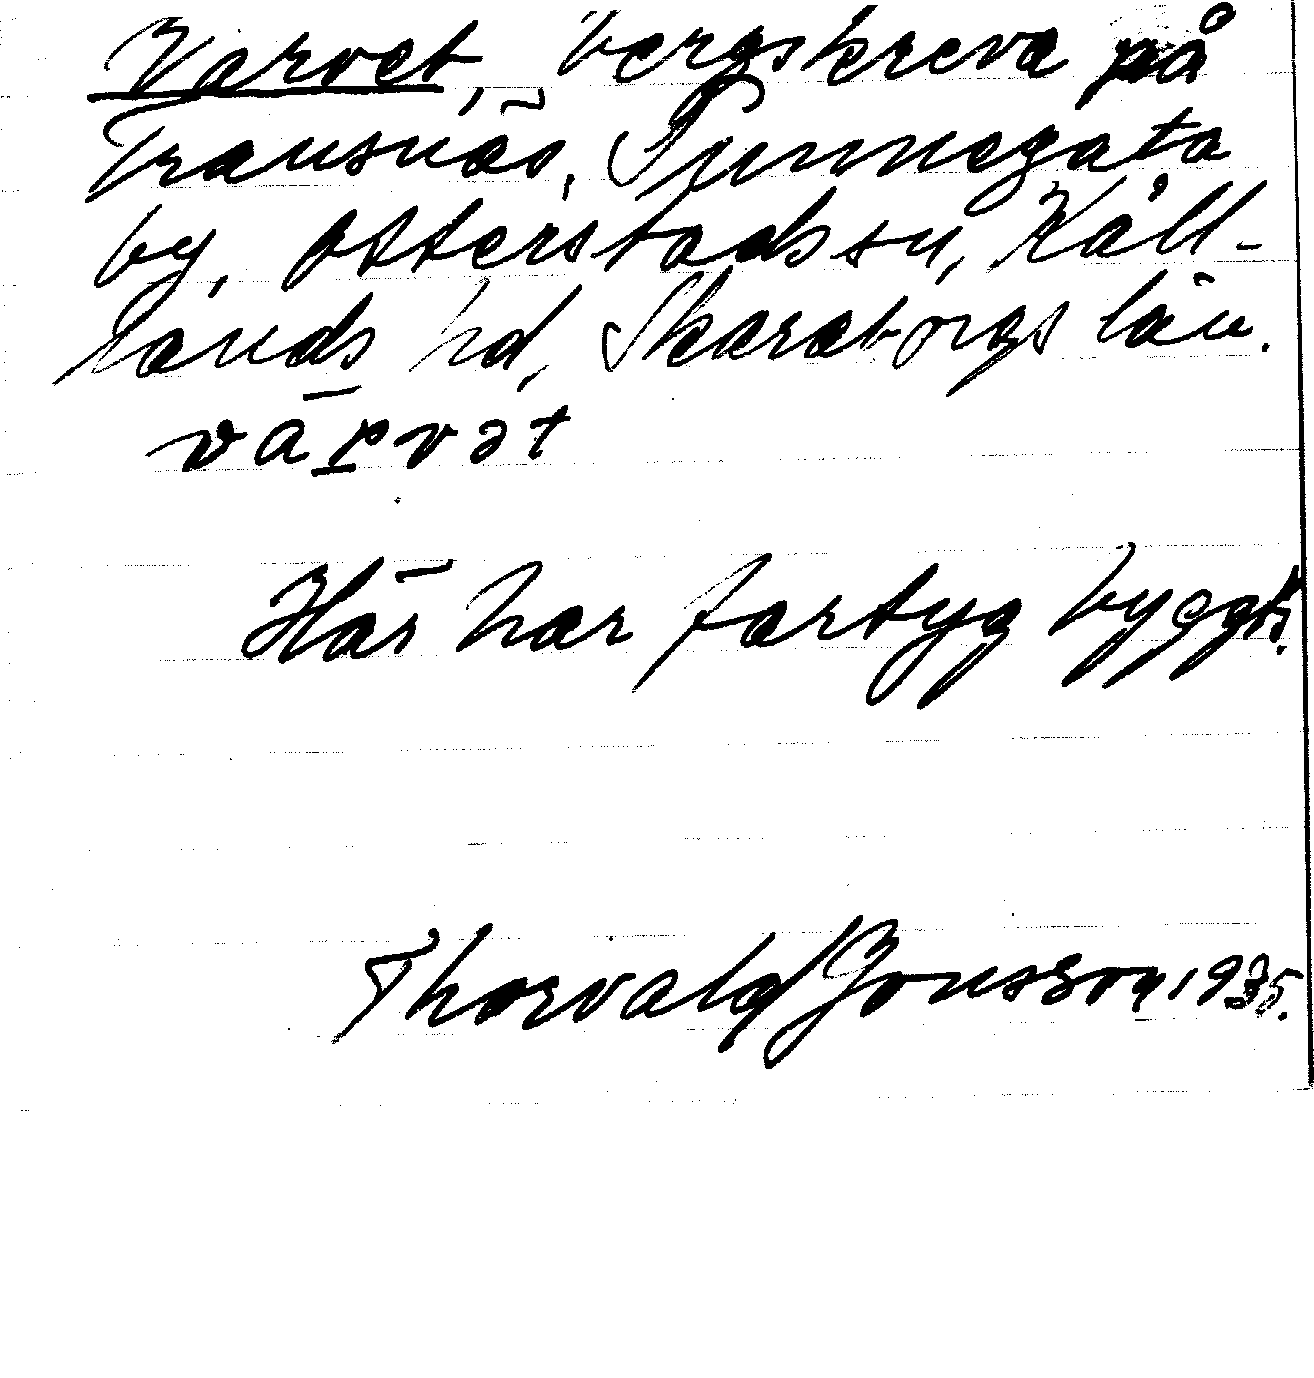 Varvet, bergskreva på
Transnäs, Tunnegata
by, Otterstads sn, Kåll-
lands hd, Skaraborgs län.
varvət
Här har fartyg byggts.
Thorvald Jonsson 1935.